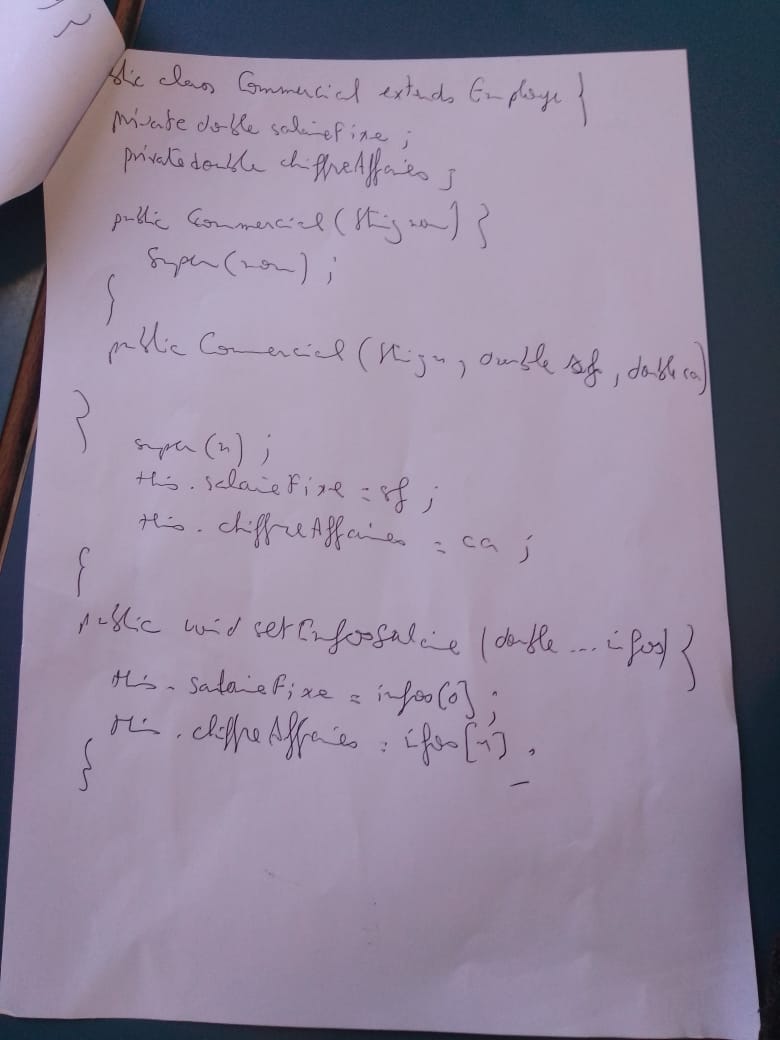 blic class Commercial extends Employe }
private double salaireFixe ;
private double chiffreAffaires ;
public Commercial (String nom) }
Super(nom) ;
}
public Commercial (String n, double sf, double ca)
}
super(n) ;
this.salaireFixe = sf ;
this.chiffreAffaires = ca ;
{
public void setInfosSalaire (double ... infos) }
this.salaireFixe = infos[0] ;
this.chiffreAffaires = infos[1] ;
}